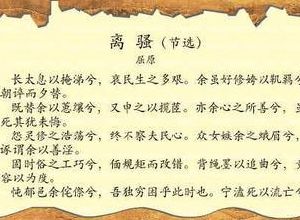 离 骚（节选）
屈原
长太息以掩涕兮，哀民生之多艰。余虽好修姱以鞿羁兮
朝谇而夕替。
既替余以蕙纕兮，又申之以揽茝。亦余心之所善兮，虽
死其犹未悔。
怨灵修之浩荡兮，终不察夫民心。众女嫉余之蛾眉兮，
诼谓余以善淫。
固时俗之工巧兮，偭规矩而改错。背绳墨以追曲兮，竞
容以为度。
忳郁邑余侘傺兮，吾独穷困乎此时也。宁溘死以流亡兮